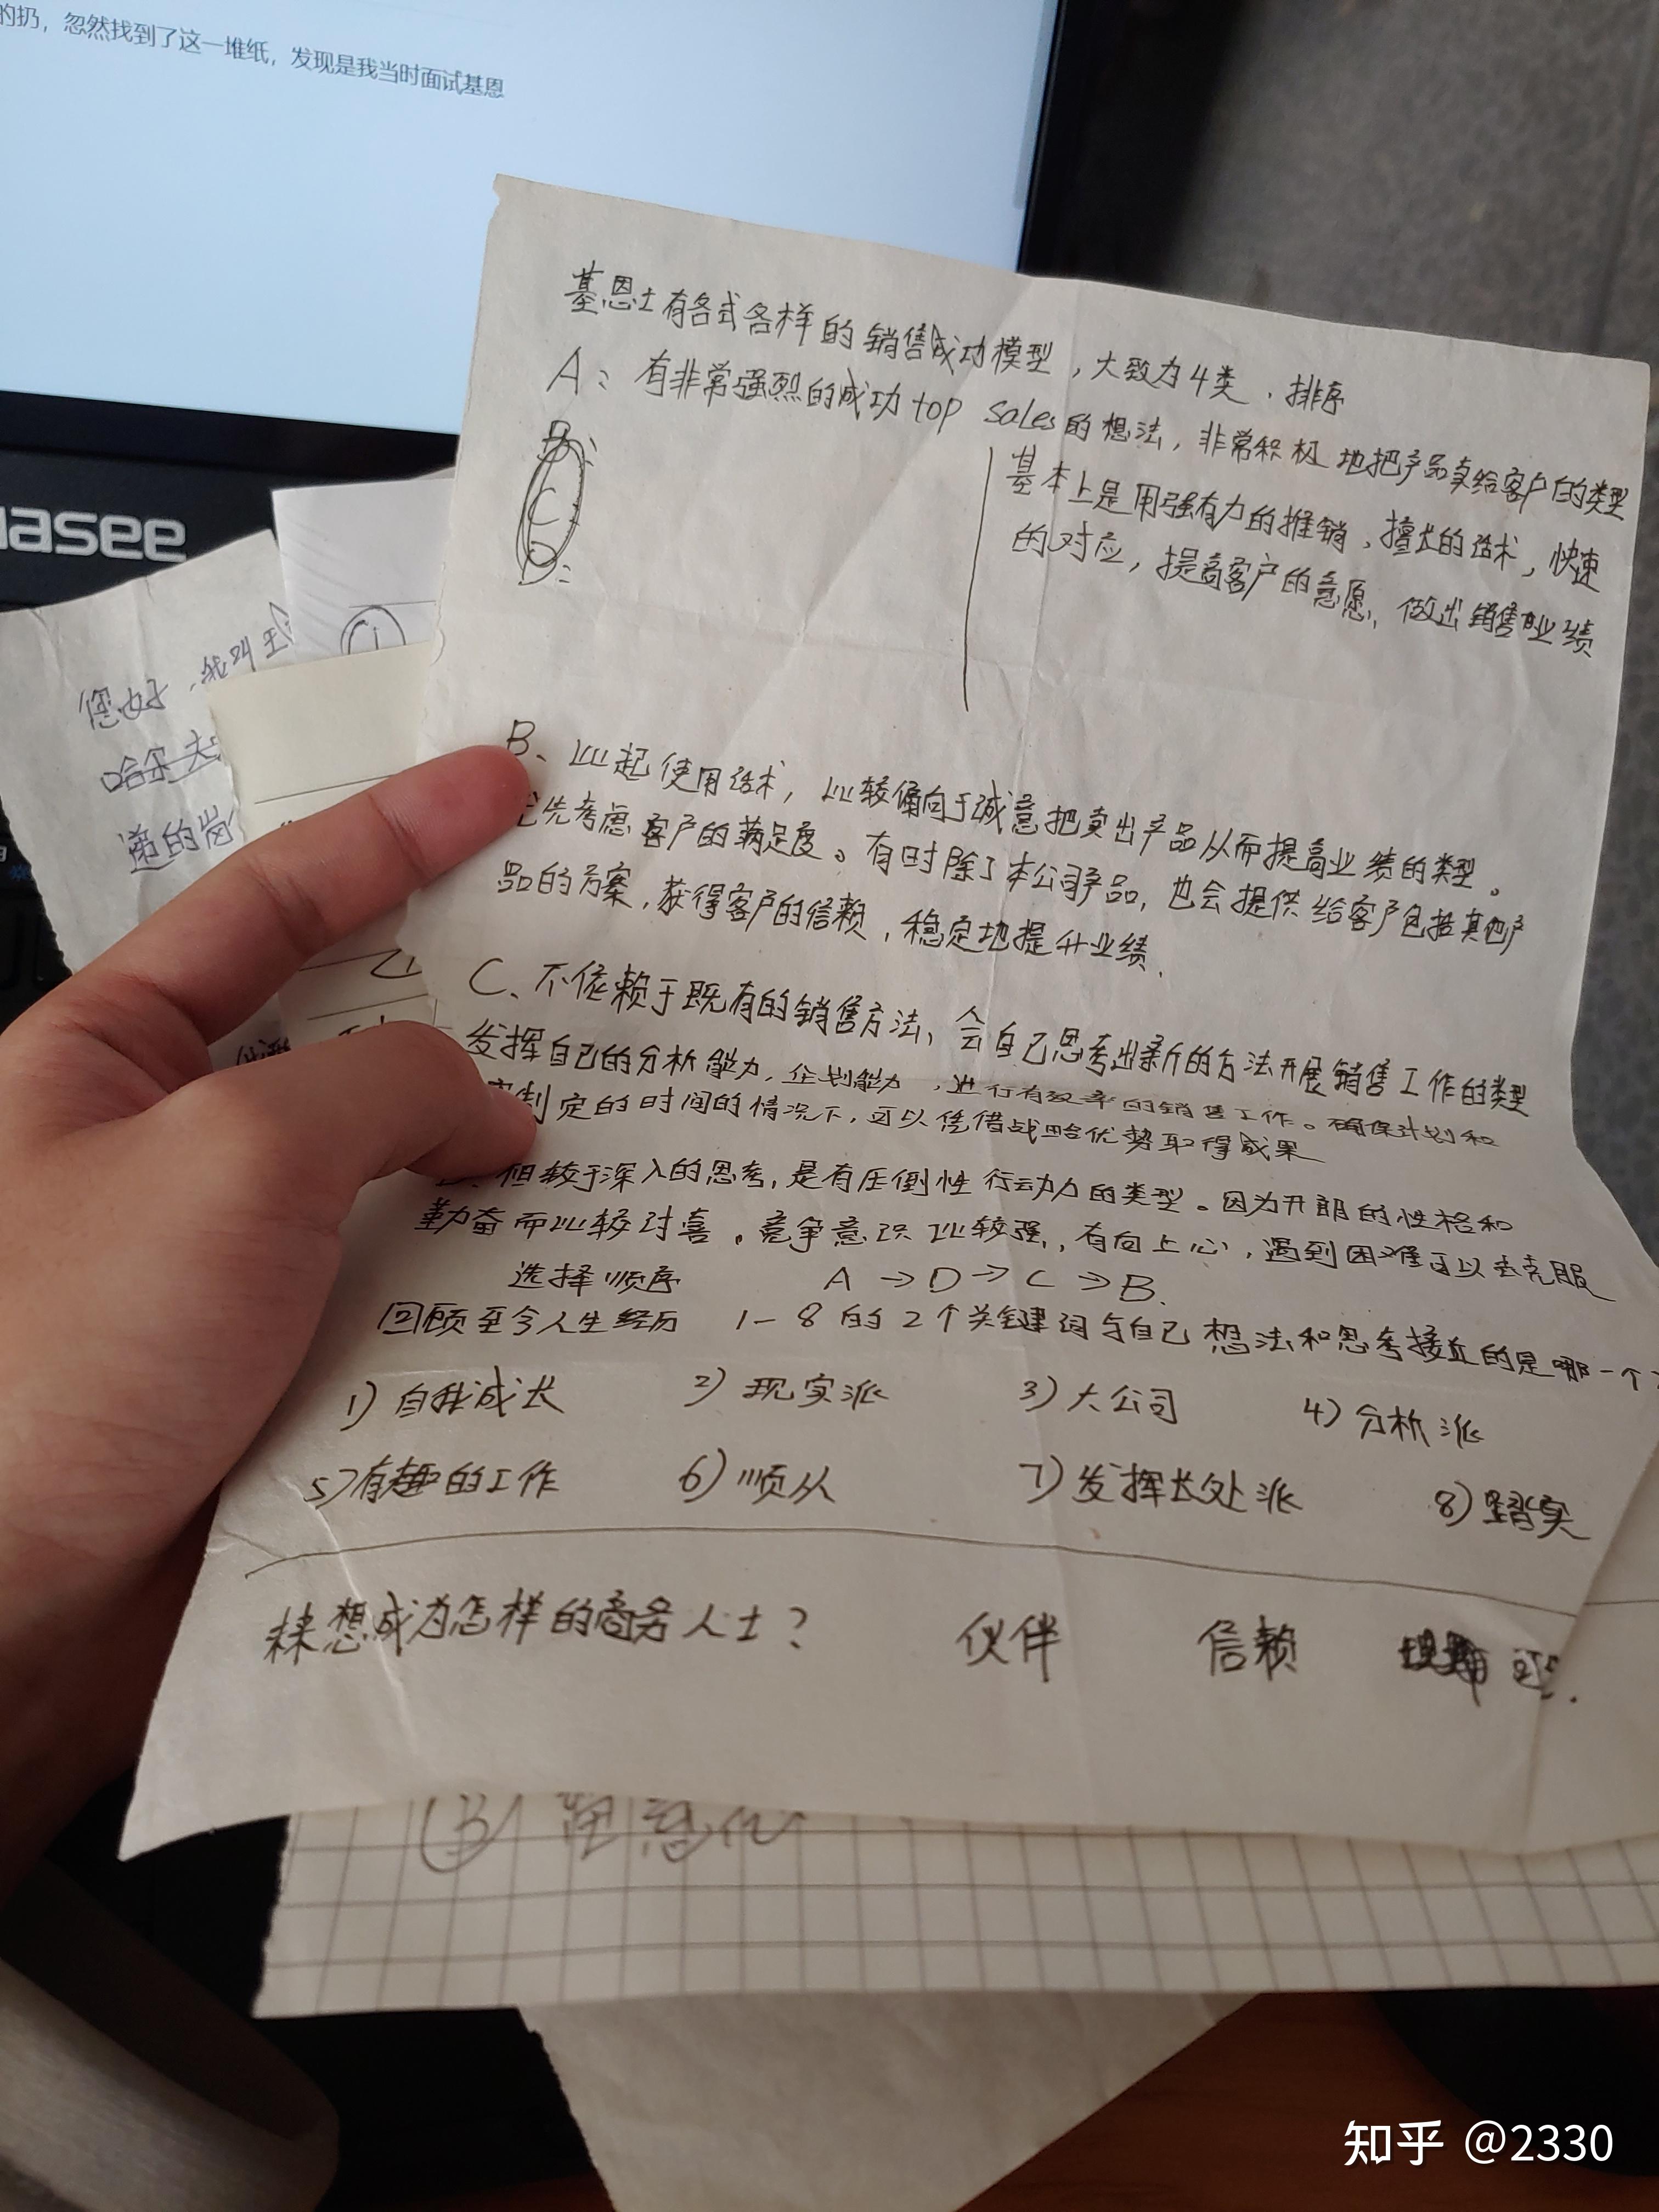 的扔，忽然找到了这一堆纸，发现是我当时面试基恩
asee
基恩士有各式各样的销售成功模型，大致为4类．排序
A：有非常强烈的成功top sales的想法，非常积极地把产品卖给客户的类型
基本上是用强有力的推销、擅长的话术，快速
的对应，提高客户的意愿，做出销售业绩
B
C
D
B、比起使用话术，比较偏向于诚意把卖出产品从而提高业绩的类型。
先考虑客户的满足度。有时除了本公司产品，也会提供给客户包括其他产
品的方案，获得客户的信赖，稳定地提升业绩．
C、不依赖于既有的销售方法，会自己思考出新的方法开展销售工作的类型
发挥自己的分析能力，企划能力，进行有效率的销售工作。确保计划和
制定的时间的情况下，可以凭借战略优势取得成果
但较于深入的思考，是有压倒性行动力的类型。因为开朗的性格和
勤奋而比较讨喜。竞争意识比较强，有向上心，遇到困难可以去克服
选择顺序 A→D→C→B.
回顾至今人生经历 1－8的2个关键词与自己想法和思考接近的是哪一个
1）自我成长 2）现实派 3）大公司 4）分析派
5）有趣的工作 6）顺从 7）发挥长处派 8）踏实
未来想成为怎样的商务人士？ 伙伴 信赖
您好，我叫王
哈尔
递的岗
知乎 @2330